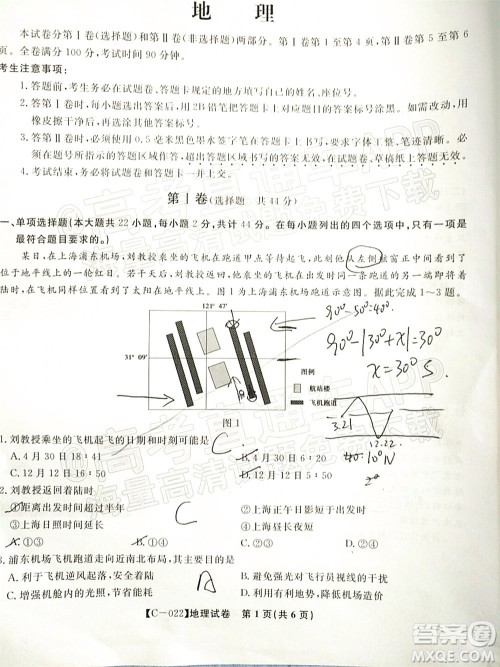 地 理
本试卷分第Ⅰ卷(选择题)和第Ⅱ卷(非选择题)两部分。第Ⅰ卷第1至第4页,第Ⅱ卷第5至第6
页。全卷满分100分,考试时间90分钟。
考生注意事项:
1. 答题前,考生务必在试题卷、答题卡规定的地方填写自己的姓名、座位号。
2. 答第Ⅰ卷时,每小题选出答案后,用2B铅笔把答题卡上对应题目的答案标号涂黑。如需改动,用
橡皮擦干净后,再选涂其他答案标号。
3. 答第Ⅱ卷时,必须使用0.5毫米黑色墨水签字笔在答题卡上书写,要求字体工整、笔迹清晰。必须在
题号所指示的答题区域作答,超出答题区域书写的答案无效,在试题卷、草稿纸上答题无效。
4. 考试结束,务必将试题卷和答题卡一并上交。
第Ⅰ卷(选择题 共44分)
一、单项选择题(本大题共22小题,每小题2分,共计44分。在每小题列出的四个选项中,只有一项是
最符合题目要求的。)
某日,在上海浦东机场,刘教授乘坐的飞机在跑道甲点等待起飞,此时他从左侧舷窗正中间看到太阳正
位于地平线上的一点。若干天后,刘教授乘坐的飞机在与出发时同一条跑道的另一端即将着
陆时,在飞机同样的窗口看到了太阳在地平线上。图1为上海浦东机场跑道示意图。据此完成1~3题。
121°47′
31°09′
图例
航站楼
飞机跑道
图1
90°-50°=40°
90°-|30°+x|=30°
x=30°S.
3.21
12.22
40.10°N
1. 刘教授乘坐的飞机起飞的日期和时刻可能是
C
A. 4月30日18:41
B. 4月30日6:20
C. 12月12日16:50
D. 12月12日5:50
2. 刘教授返回着陆时
①距离出发时间较短
②上海正午日影于出发时长
③上海日照时间延长
④上海昼长夜短
A. ①②
B. ①③
C. ②③
D. ③④
C
3. 浦东机场飞机跑道走向近南北布局,其主要目的是
A. 利于逆风起落,安全性高
B. 避免阳光影响飞行员视线
C. 适应地形的起伏状况
D. 有利于利用地势,方便排水
A
【C-022】地理试卷 第1页(共6页)